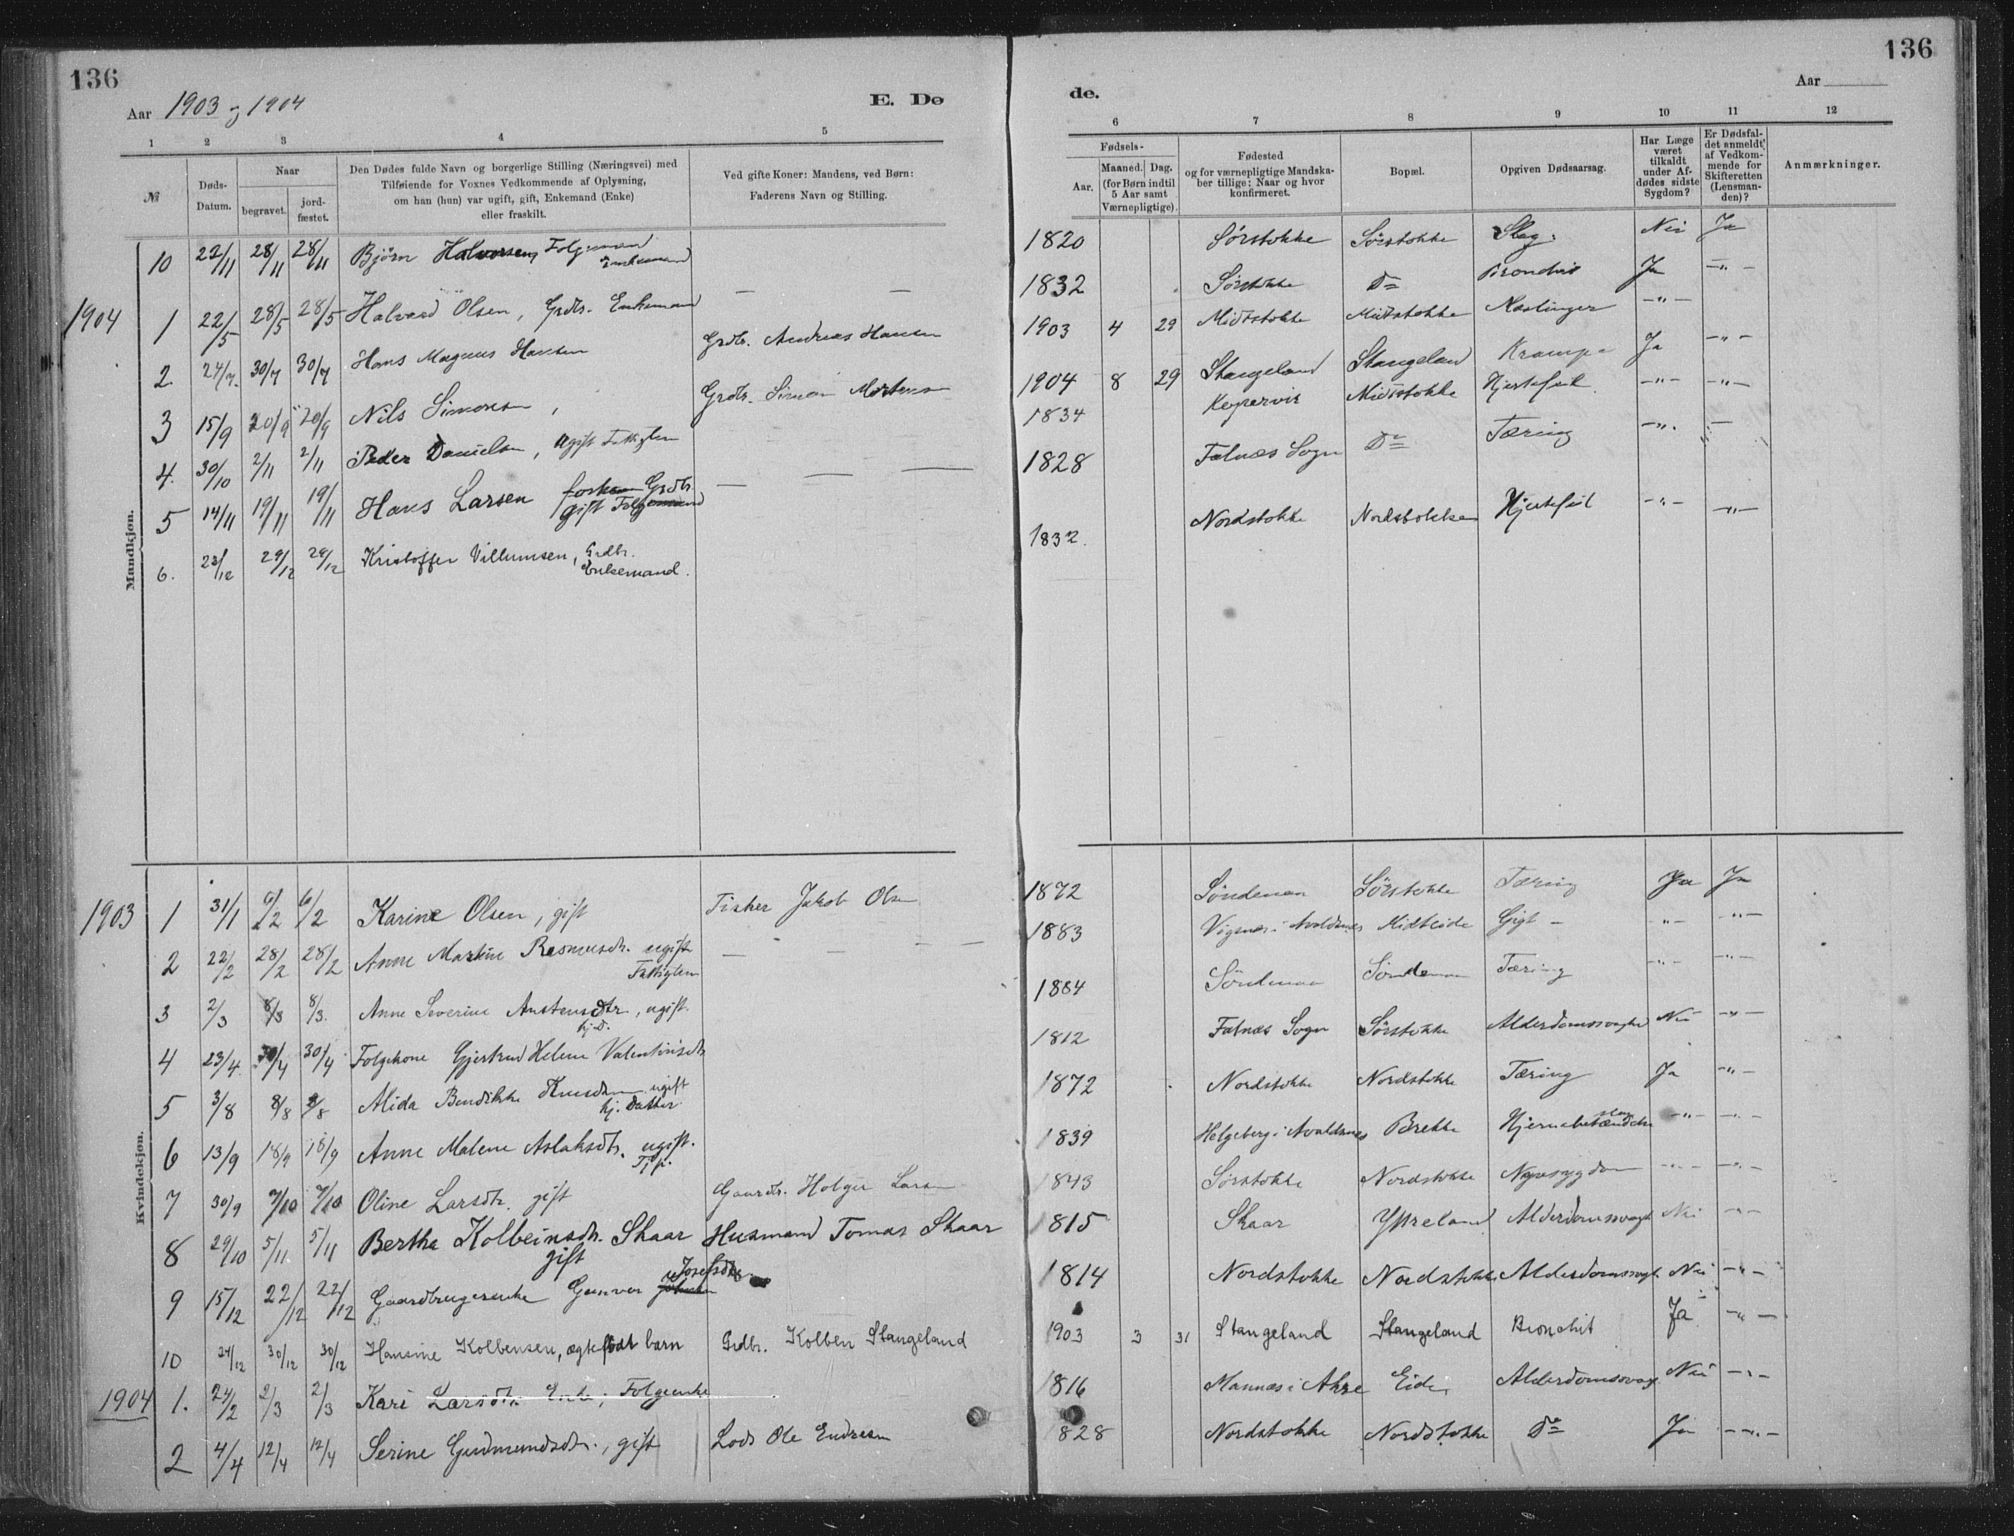 136
136
Aar 1903 og 1904
E. Dø
de.
Aar
1 2 3 4 5
6 7 8 9 10 11 12
№
Døds-Datum.
Naar
begravet.
jord-fæstet.
Den Dødes fulde Navn og borgerlige Stilling (Næringsvei) med
Tilføiende for Voxnes Vedkommende af Oplysning,
om han (hun) var ugift, gift, Enkemand (Enke)
eller fraskilt.
Ved gifte Koner: Mandens, ved Børn:
Faderens Navn og Stilling.
Fødsels-
Aar. Maaned. Dag.
(for Børn indtil 5 Aar samt Værnepligtige).
Fødested
og for værnepligtige Mandska-
ber tillige: Naar og hvor
konfirmeret.
Bopæl.
Opgiven Dødsaarsag.
Har Læge været tilkaldt under Af-dødes sidste Sygdom?
Er Dødsfal-det anmeldt af Vedkom-mende for Skifteretten (Lensman-den)?
Anmærkninger.
Mandkjøn.
10 22/11 28/11 28/11 Bjørn Halvorsen, Folgemand Enkemand 1820 Sörstokke Sörstokke Slag. Nei Ja
1904 1 22/5 28/5 28/5 Halvard Olsen, Grdbr. Enkemand — — 1832 Sörstokke Do Ja -"-
2. 24/7. 30/7 30/7 Hans Magnus Hansen Grdbr. Andreas Hansen 1903 4 29 Midtstokke Midtstokke -"-
3 15/9 20/9 20/9 Nils Simonsen, Grdbr. Simon Mortensen 1904 8 29 Stangeland Stangeland Krampe Ja -"-
4. 30/10 2/11 2/11 Peder Danielsen, ugift Fattiglem 1834 Kopervik Midtstokke Hjertefeil -"- -"-
5 14/11 19/11 19/11 Hans Larsen Grdbr. gift Folgemand — — — 1828 Falnæs Sogn Do Tæring -"- —
6. 23/12 29/12 29/12 Kristoffer Villumsen, Grdbr. Enkemand. 1832. Nordstokke Nordstokke Hjertefeil -"- -"-
Kvindekjøn.
1903 1 31/1 6/2 6/2 Karine Olsen, gift Fisker Jakob Olsen 1872 Söndenaa Sörstokke Tæring Ja Ja
2 22/2 28/2 28/2 Anne Martine Rasmusdtr. ugift Fattiglem — — — — 1883 Vignæs i Avaldsnes Midtstokke Gigt - -"- -"-
3 2/3 8/3 8/3. Anne Severine Austensdtr, ugift. hj. D. 1884 Söndenaa Söndenaa Tæring -"- -"-
4 23/4 30/4 30/4 Folgekone Gjertrud Helene Valentinsdtr 1812 Falnæs Sogn Sörstokke Alderdomssvaghed Nei -"-
5 3/8 8/8 8/8 Alida Bendikke Knudsen ugift hj. Datter 1872 Nordstokke Nordstokke Tæring Ja -"-
6 13/9 18/9 18/9 Anne Malene Aslaksdtr. ugift. Tjp. 1839 Helgeberg i Avaldsnes Brekke Hjernebetændelse -"- -"-
7 30/9 7/10 7/10 Oline Larsdtr. gift Gaardbr. Holger Larsen 1843 Sörstokke Nordstokke Nyresygdom -"- -"-
8 29/10 5/11 5/11 Bertha Kolbeinsdtr. Skaar gift Husmand Tomas Skaar 1815 Skaar Ytreland Alderdomssvagh Nei -"-
9 15/12 22/12 22/12 Gaardbrugerenke Gunver Josefsdtr 1814 Nordstokke Nordstokke Alderdomssvagh. Nei -"-
10 24/12 30/12 30/12 Hansine Kolbensen, ægtefødt barn Grdbr. Kolben Stangeland 1903 3 31 Stangeland Stangeland Bronchit Ja -"-
1904 1. 24/2 2/3 2/3 Kari Larsdtr. Enke, Folgeenke 1816 Mannæs i Akre Eide Alderdomssvag. Nei -"-
2 4/4 12/4 12/4 Serine Gudmundsdtr., gift Lods Ole Endresen 1828 Nordstokke Nordstokke Do Ja -"-